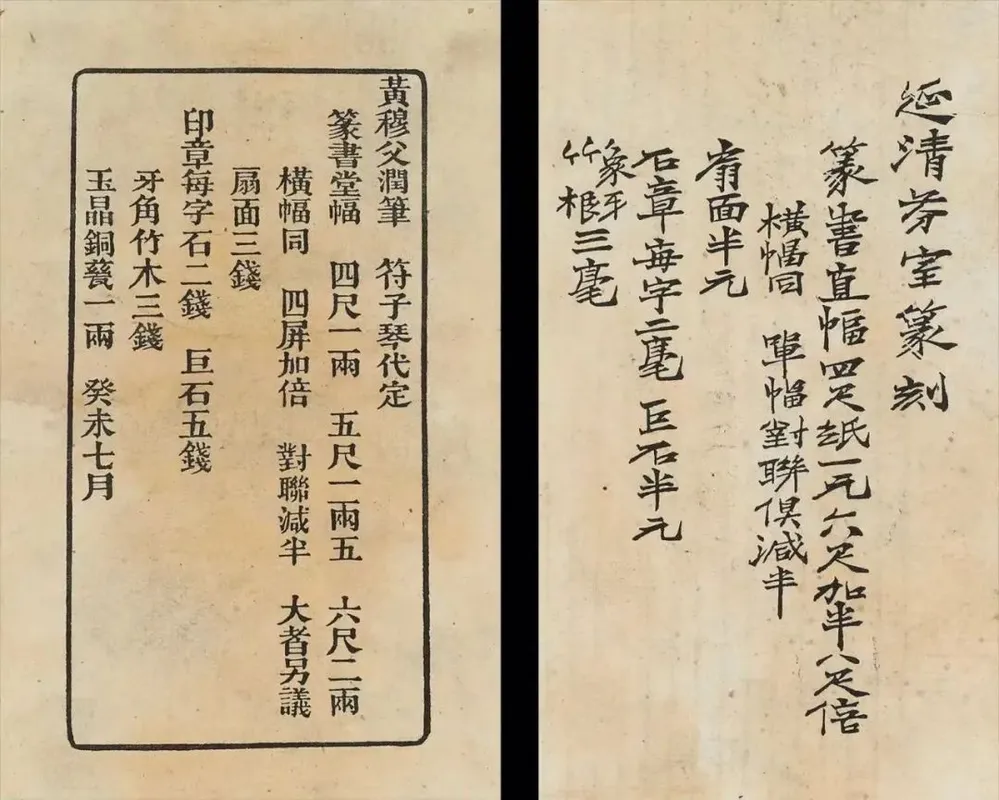 黃穆父潤筆　符子琴代定
篆書堂幅　四尺一兩　五尺一兩五　六尺二兩
橫幅同　四屏加倍　對聯減半　大者另議
扇面三錢
印章每字石二錢　巨石五錢
牙角竹木三錢
玉晶銅瓷一兩　癸未七月
延清芬室篆刻
篆書直幅四尺紙一元六尺加半八尺倍
橫幅同　單幅對聯俱減半
扇面半元
石章每字二毫　巨石半元
象牙
竹根三毫